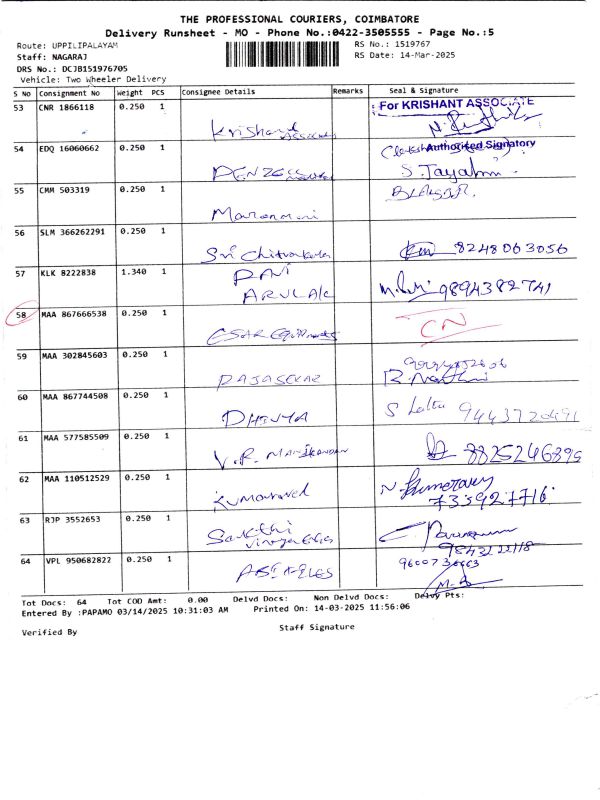 THE PROFESSIONAL COURIERS, COIMBATORE
Delivery Runsheet - MO - Phone No.:0422-3505555 - Page No.:5
Route: UPPILIPALAYAM
RS No.: 1519767
Staff: NAGARAJ
RS Date: 14-Mar-2025
DRS No.: DCJB151976705
Vehicle: Two Wheeler Delivery
S No Consignment No Weight PCS Consignee Details Remarks Seal & Signature
53 CNR 1866118 0.250 1 For KRISHANT ASSOCIATE
Krishant Associates
54 EDQ 16060662 0.250 1 Authorised Signatory
S. Jayalmi
55 CMM 503319 0.250 1
Maronmani
56 SLM 366262291 0.250 1
Sri Chitrakala 8248063056
57 KLK B222838 1.340 1 RAVI
ARUL A/C 9894382741
58 MAA 867666538 0.250 1 CN
ESAR Equipments
59 MAA 302845603 0.250 1
RAJASEKAR
60 MAA 867744508 0.250 1
DHIVYA S Latha
61 MAA 577585509 0.250 1
V.R. MANIKANDAN 8825246895
62 MAA 110512529 0.250 1
Kumaravel 733927716
63 RJP 3552653 0.250 1
Sakthi
64 VPL 950682822 0.250 1 9600736663
Tot Docs: 64 Tot COD Amt: 0.00 Delvd Docs: Non Delvd Docs: Delvy Pts:
Entered By :PAPAMO 03/14/2025 10:31:03 AM Printed On: 14-03-2025 11:56:06
Staff Signature
Verified By